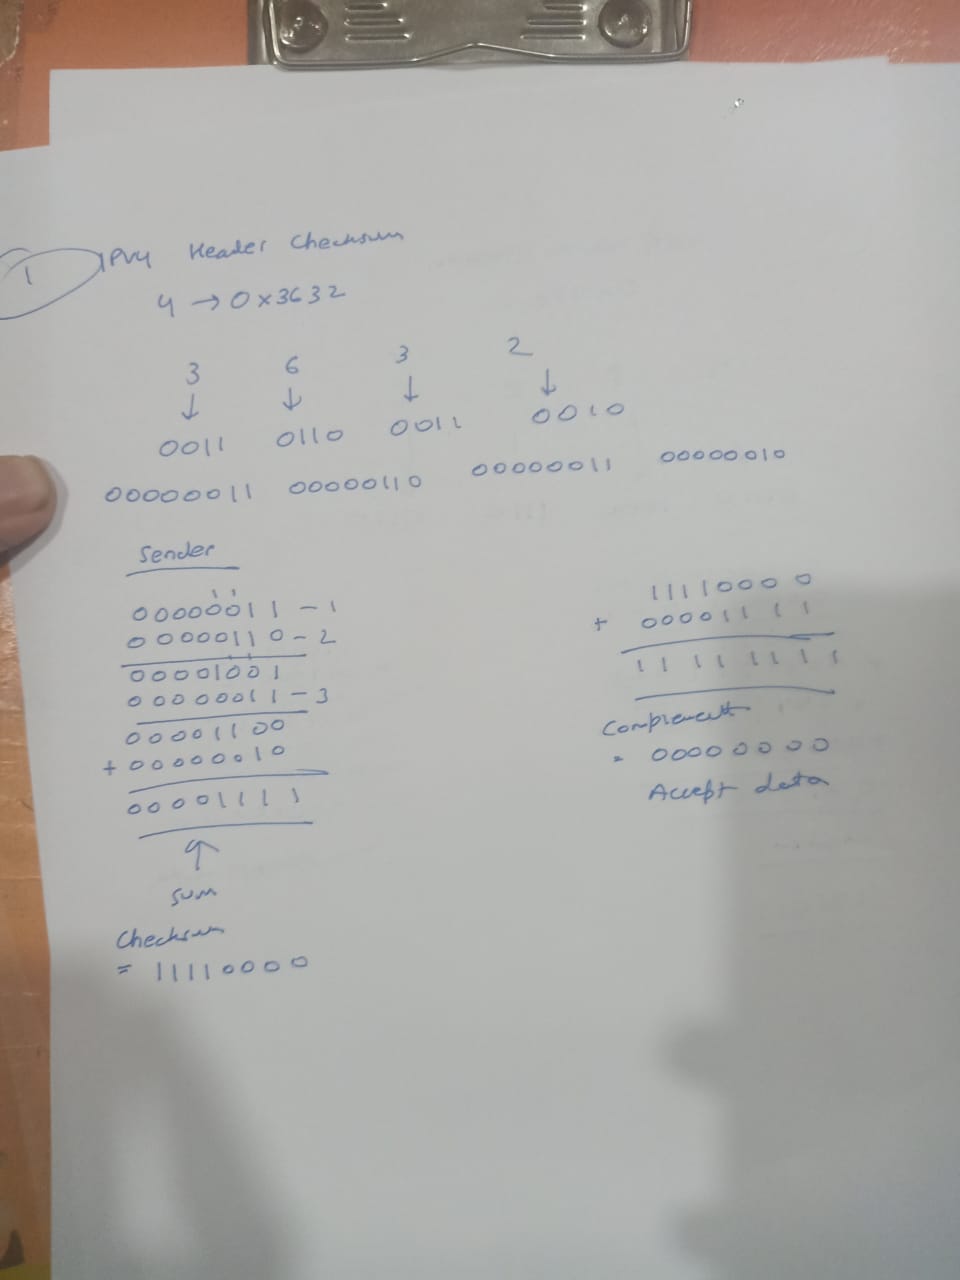 1
IPv4 Header Checksum
4 → 0x3632
3 6 3 2
↓ ↓ ↓ ↓
0011 0110 0011 0010
00000011 00000110 00000011 00000010
Sender
00000011 - 1
00000110 - 2
00001001
00000011 - 3
00001100
+ 00000010
00001111
↑
sum
Checksum
= 11110000
11110000
+ 00001111
11111111
Complement
= 00000000
Accept data